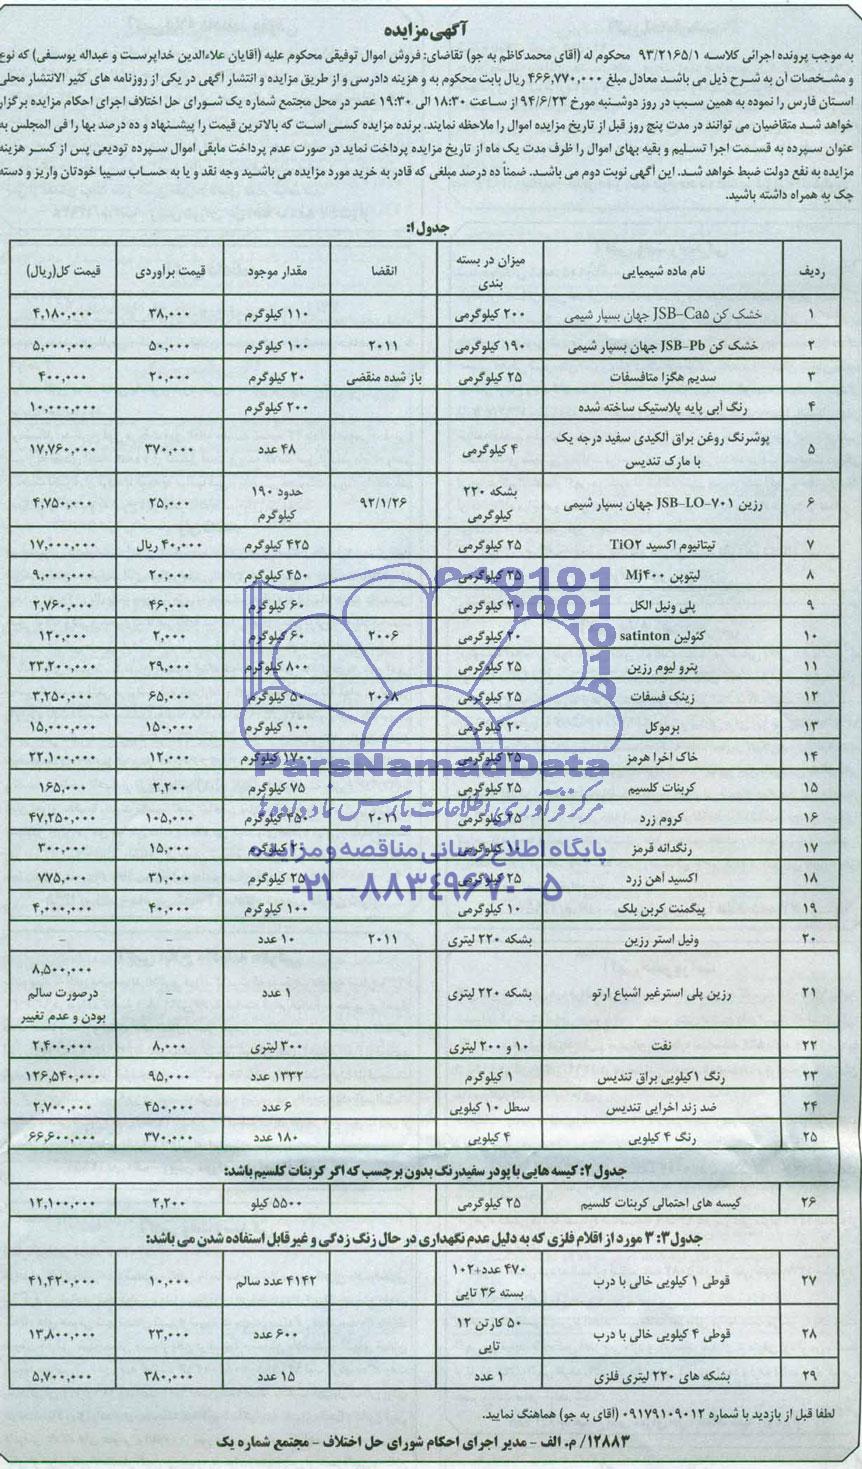 آگهی مزایده
به موجب پرونده اجرائی کلاسه ۹۳/۲۱۶۵/۱ محکوم له (آقای محمدکاظم به جو) تقاضای: فروش اموال توقیفی محکوم علیه (آقایان علاءالدین خداپرست و عبداله یوسفی) که نوع
و مشخصات آن به شرح ذیل می باشد معادل مبلغ ۴۶۶,۷۷۰,۰۰۰ ریال بابت محکوم به و هزینه دادرسی و از طریق مزایده و انتشار آگهی در یکی از روزنامه های کثیر الانتشار محلی
استان فارس را نموده به همین سبب در روز دوشنبه مورخ ۹۴/۶/۲۳ از ساعت ۱۸:۳۰ الی ۱۹:۳۰ عصر در محل مجتمع شماره یک شورای حل اختلاف اجرای احکام مزایده برگزار
خواهد شد متقاضیان می توانند در مدت پنج روز قبل از تاریخ مزایده اموال را ملاحظه نمایند. برنده مزایده کسی است که بالاترین قیمت را پیشنهاد و ده درصد بها را فی المجلس به
عنوان سپرده به قسمت اجرا تسلیم و بقیه بهای اموال را ظرف مدت یک ماه از تاریخ مزایده پرداخت نماید در صورت عدم پرداخت مابقی اموال سپرده تودیعی پس از کسر هزینه
مزایده به نفع دولت ضبط خواهد شد. این آگهی نوبت دوم می باشد. ضمناً ده درصد مبلغی که قادر به خرید مورد مزایده می باشید وجه نقد و یا به حساب سیبا خودتان واریز و دسته
چک به همراه داشته باشید.
جدول ۱:
ردیف نام ماده شیمیایی میزان در بسته بندی انقضا مقدار موجود قیمت برآوردی قیمت کل(ریال)
۱ خشک کن JSB-Ca۵ جهان بسپار شیمی ۲۰۰ کیلوگرمی ۱۱۰ کیلوگرم ۳۸,۰۰۰ ۴,۱۸۰,۰۰۰
۲ خشک کن JSB-Pb جهان بسپار شیمی ۱۹۰ کیلوگرمی ۲۰۱۱ ۱۰۰ کیلوگرم ۵۰,۰۰۰ ۵,۰۰۰,۰۰۰
۳ سدیم هگزا متافسفات ۲۵ کیلوگرمی باز شده منقضی ۲۰ کیلوگرم ۲۰,۰۰۰ ۴۰۰,۰۰۰
۴ رنگ آبی پایه پلاستیک ساخته شده ۲۰۰ کیلوگرم ۱۰,۰۰۰,۰۰۰
۵ پوشرنگ روغن براق آلکیدی سفید درجه یک با مارک تندیس ۴ کیلوگرمی ۴۸ عدد ۳۷۰,۰۰۰ ۱۷,۷۶۰,۰۰۰
۶ رزین JSB-LO-۷۰۱ جهان بسپار شیمی بشکه ۲۲۰ کیلوگرمی ۹۲/۱/۲۶ حدود ۱۹۰ کیلوگرم ۲۵,۰۰۰ ۴,۷۵۰,۰۰۰
۷ تیتانیوم اکسید TiO۲ ۲۵ کیلوگرمی ۴۲۵ کیلوگرم ۴۰,۰۰۰ ریال ۱۷,۰۰۰,۰۰۰
۸ لیتوپن Mj۴۰۰ ۲۵ کیلوگرمی ۴۵۰ کیلوگرم ۲۰,۰۰۰ ۹,۰۰۰,۰۰۰
۹ پلی ونیل الکل ۲۰ کیلوگرمی ۶۰ کیلوگرم ۴۶,۰۰۰ ۲,۷۶۰,۰۰۰
۱۰ کئولین satinton ۲۰ کیلوگرمی ۲۰۰۶ ۶۰ کیلوگرم ۲,۰۰۰ ۱۲۰,۰۰۰
۱۱ پترو لیوم رزین ۲۵ کیلوگرمی ۸۰۰ کیلوگرم ۲۹,۰۰۰ ۲۳,۲۰۰,۰۰۰
۱۲ زینک فسفات ۲۵ کیلوگرمی ۲۰۰۸ ۵۰ کیلوگرم ۶۵,۰۰۰ ۳,۲۵۰,۰۰۰
۱۳ برموکل ۲۰ کیلوگرمی ۱۰۰ کیلوگرم ۱۵۰,۰۰۰ ۱۵,۰۰۰,۰۰۰
۱۴ خاک اخرا هرمز ۲۵ کیلوگرمی ۱۷۰۰ کیلوگرم ۱۲,۰۰۰ ۲۲,۱۰۰,۰۰۰
۱۵ کربنات کلسیم ۲۵ کیلوگرمی ۷۵ کیلوگرم ۲,۲۰۰ ۱۶۵,۰۰۰
۱۶ کروم زرد ۲۵ کیلوگرمی ۲۰۲۱ ۴۵۰ کیلوگرم ۱۰۵,۰۰۰ ۴۷,۲۵۰,۰۰۰
۱۷ رنگدانه قرمز ۱۰ کیلوگرمی ۲۰ کیلوگرم ۱۵,۰۰۰ ۳۰۰,۰۰۰
۱۸ اکسید آهن زرد ۲۵ کیلوگرمی ۲۵ کیلوگرم ۳۱,۰۰۰ ۷۷۵,۰۰۰
۱۹ پیگمنت کربن بلک ۱۰ کیلوگرمی ۱۰۰ کیلوگرم ۴۰,۰۰۰ ۴,۰۰۰,۰۰۰
۲۰ ونیل استر رزین بشکه ۲۲۰ لیتری ۲۰۱۱ ۱۰ عدد – –
۲۱ رزین پلی استرغیر اشباع ارتو بشکه ۲۲۰ لیتری ۱ عدد ۸,۵۰۰,۰۰۰ درصورت سالم بودن و عدم تغییر
۲۲ نفت ۱۰ و ۲۰۰ لیتری ۳۰۰ لیتری ۸,۰۰۰ ۲,۴۰۰,۰۰۰
۲۳ رنگ ۱کیلویی براق تندیس ۱ کیلوگرم ۱۳۳۲ عدد ۹۵,۰۰۰ ۱۲۶,۵۴۰,۰۰۰
۲۴ ضد زند اخرایی تندیس سطل ۱۰ کیلویی ۶ عدد ۴۵۰,۰۰۰ ۲,۷۰۰,۰۰۰
۲۵ رنگ ۴ کیلویی ۴ کیلویی ۱۸۰ عدد ۳۷۰,۰۰۰ ۶۶,۶۰۰,۰۰۰
جدول ۲: کیسه هایی با پودر سفیدرنگ بدون برچسب که اگر کربنات کلسیم باشد:
۲۶ کیسه های احتمالی کربنات کلسیم ۲۵ کیلوگرمی ۵۵۰۰ کیلو ۲,۲۰۰ ۱۲,۱۰۰,۰۰۰
جدول ۳: ۳ مورد از اقلام فلزی که به دلیل عدم نگهداری در حال زنگ زدگی و غیرقابل استفاده شدن می باشد:
۲۷ قوطی ۱ کیلویی خالی با درب ۴۷۰ عدد+۱۰۲ بسته ۳۶ تایی ۴۱۴۲ عدد سالم ۱۰,۰۰۰ ۴۱,۴۲۰,۰۰۰
۲۸ قوطی ۴ کیلویی خالی با درب ۵۰ کارتن ۱۲ تایی ۶۰۰ عدد ۲۳,۰۰۰ ۱۳,۸۰۰,۰۰۰
۲۹ بشکه های ۲۲۰ لیتری فلزی ۱ عدد ۱۵ عدد ۳۸۰,۰۰۰ ۵,۷۰۰,۰۰۰
لطفا قبل از بازدید با شماره ۰۹۱۷۹۱۰۹۰۱۲ (آقای به جو) هماهنگ نمایید.
۱۲۸۸۳/م. الف - مدیر اجرای احکام شورای حل اختلاف - مجتمع شماره یک
ParsNamadData
مرکز فرآوری اطلاعات پارس نماد داده ها
پایگاه اطلاع رسانی مناقصه و مزایده
۰۲۱-۸۸۳۴۹۶۷۰-۵